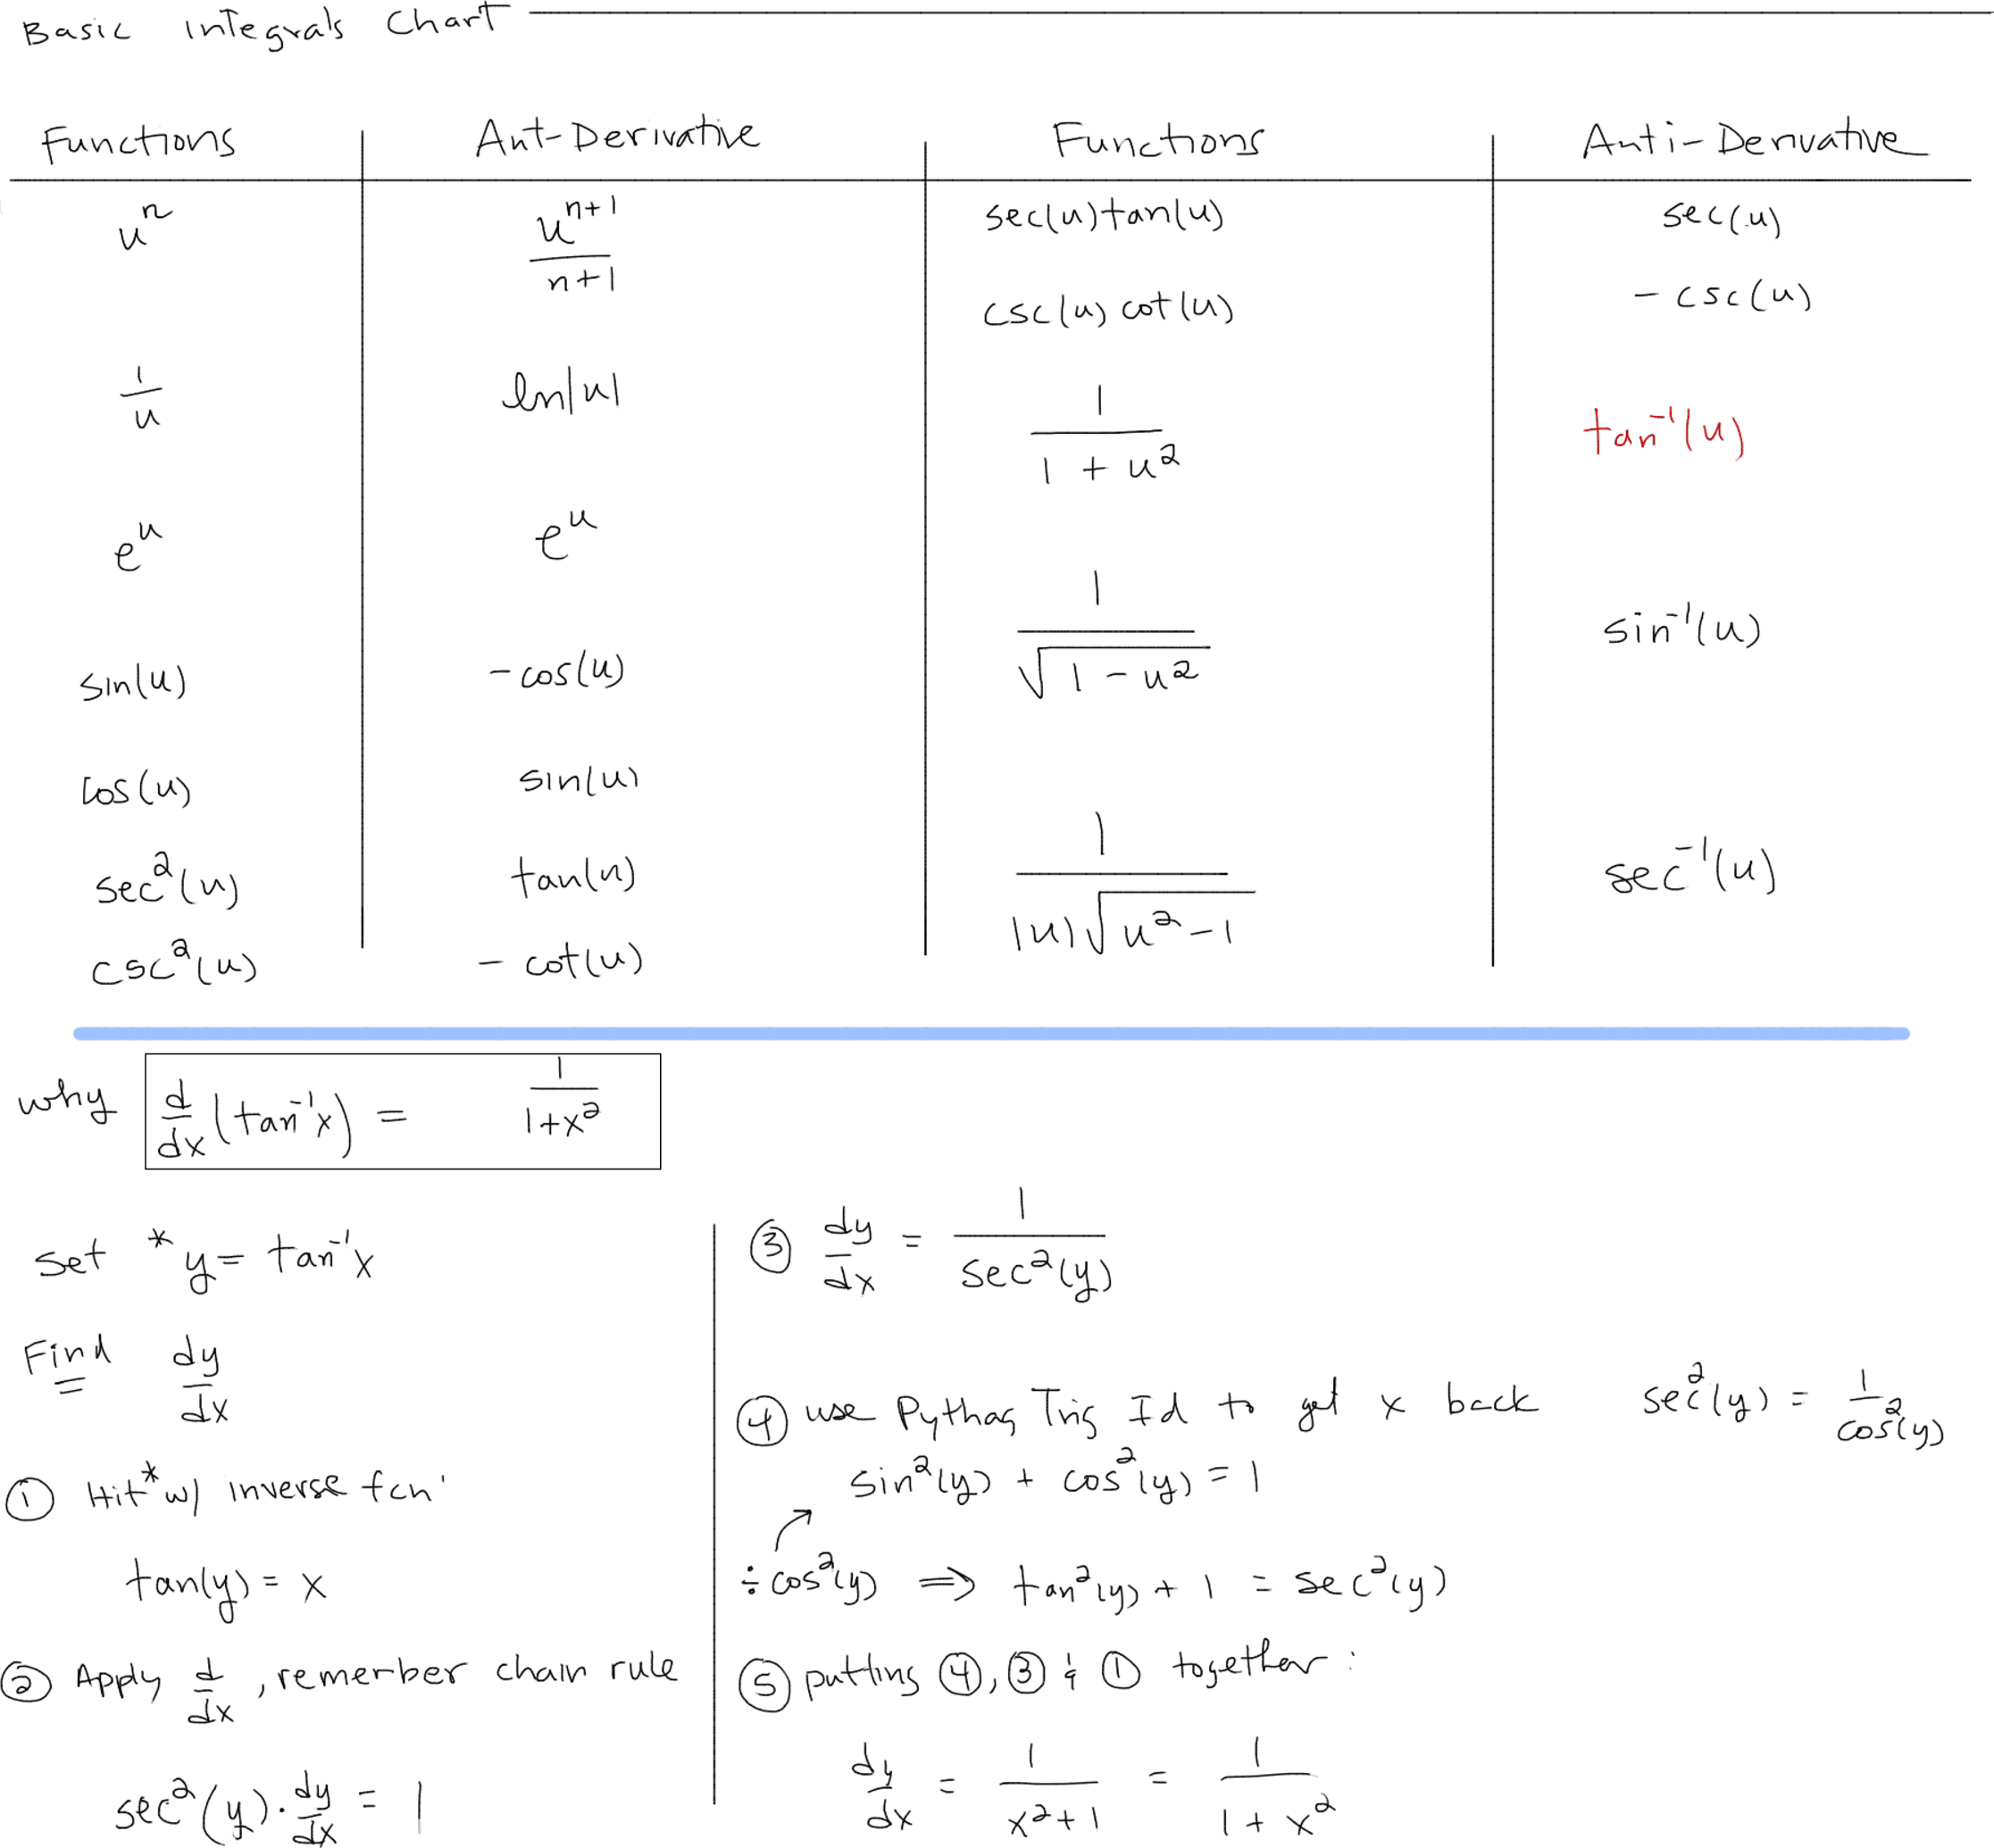 Basic Integrals Chart
Functions | Ant-Derivative | Functions | Anti-Derivative
u^n | u^(n+1)/(n+1) | sec(u)tan(u) | sec(u)
csc(u) cot(u) | -csc(u)
1/u | ln|u| | 1/(1+u²) | tan⁻¹(u)
e^u | e^u | 1/√(1-u²) | sin⁻¹(u)
sin(u) | -cos(u)
cos(u) | sin(u)
sec²(u) | tan(u) | 1/(|u|√(u²-1)) | sec⁻¹(u)
csc²(u) | -cot(u)
why d/dx (tan⁻¹x) = 1/(1+x²)
Set * y = tan⁻¹x
Find dy/dx
① Hit * w/ inverse fcn
tan(y) = x
② Apply d/dx, remember chain rule
sec²(y) · dy/dx = 1
③ dy/dx = 1/sec²(y)
④ use Pythag Trig Id to get x back sec²(y) = 1/cos²(y)
sin²(y) + cos²(y) = 1
÷ cos²(y) ⟹ tan²(y) + 1 = sec²(y)
⑤ putting ④, ③ & ① together:
dy/dx = 1/(x²+1) = 1/(1+x²)